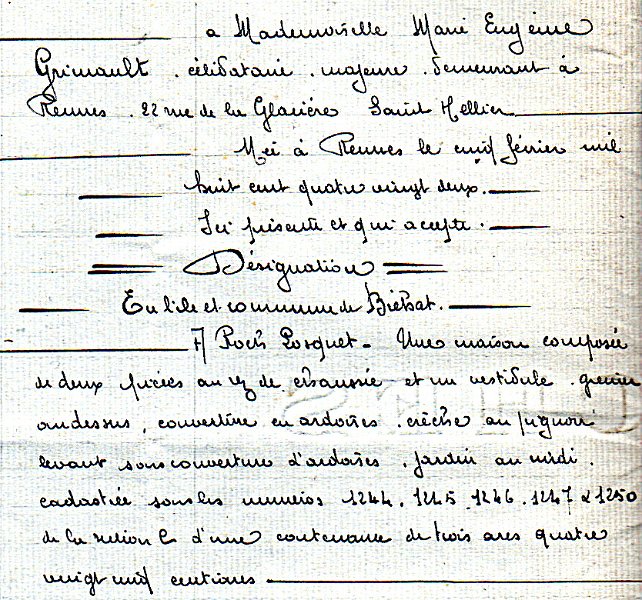 a Mademoiselle Marie Eugénie
Grimault . célibataire . majeure . demeurant à
Rennes . 22 rue de la Glacière Saint Hellier
Née à Rennes le neuf février mil
huit cent quatre vingt deux.
Ici présente et qui accepte.
Désignation
En l'île et commune de Bréhat.
7/ Roch Losquet - Une maison composée
de deux pièces au rez de chaussée et un vestibule . grenier
au dessus, couverture en ardoises . crèche au pignon
levant sous couverture d'ardoises . jardin au midi .
cadastrée sous les numéros 1244. 1245. 1246. 1247 & 1250
de la section C d'une contenance de trois ares quatre
vingt neuf centiares